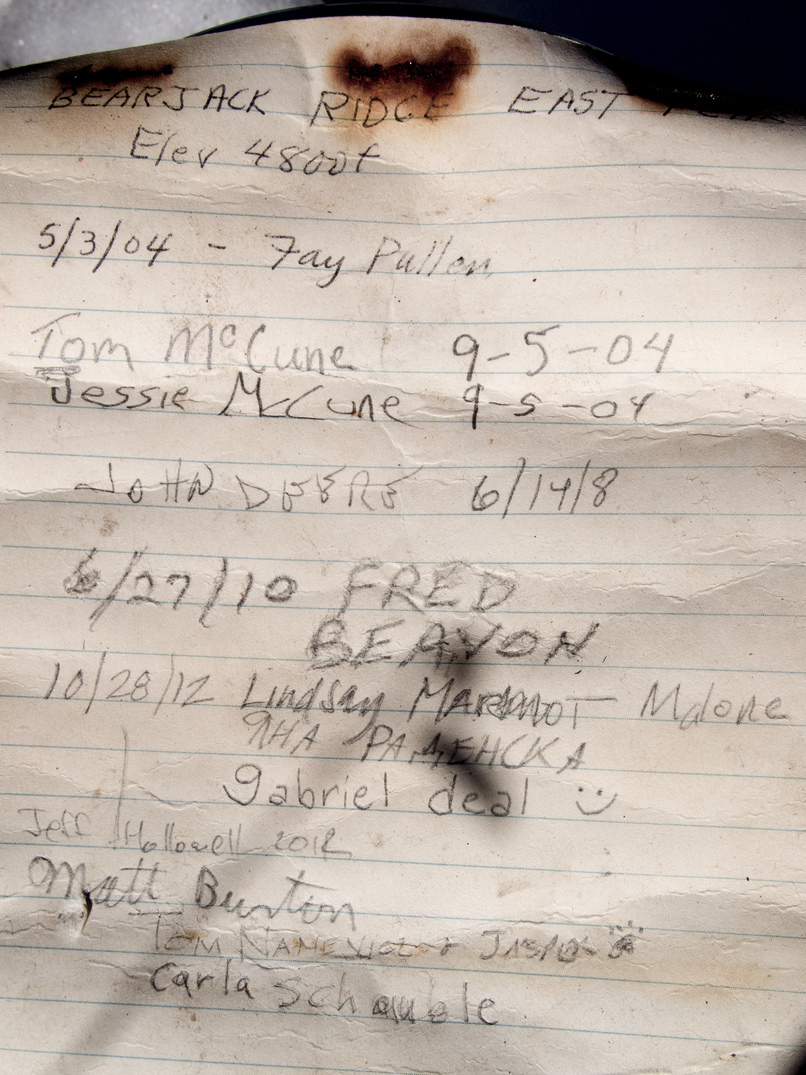 BEARJACK RIDGE EAST PEAK
Elev 4800+
5/3/04 - Fay Pullen
Tom McCune 9-5-04
Jessie McCune 9-5-04
JOHN DEERE 6/14/8
6/27/10 FRED
BEAVON
10/28/12 Lindsay MARMOT Malone
gabriel deal :)
Jeff Hollowell 2012
Matt Burton
Tom
Carla Schauble